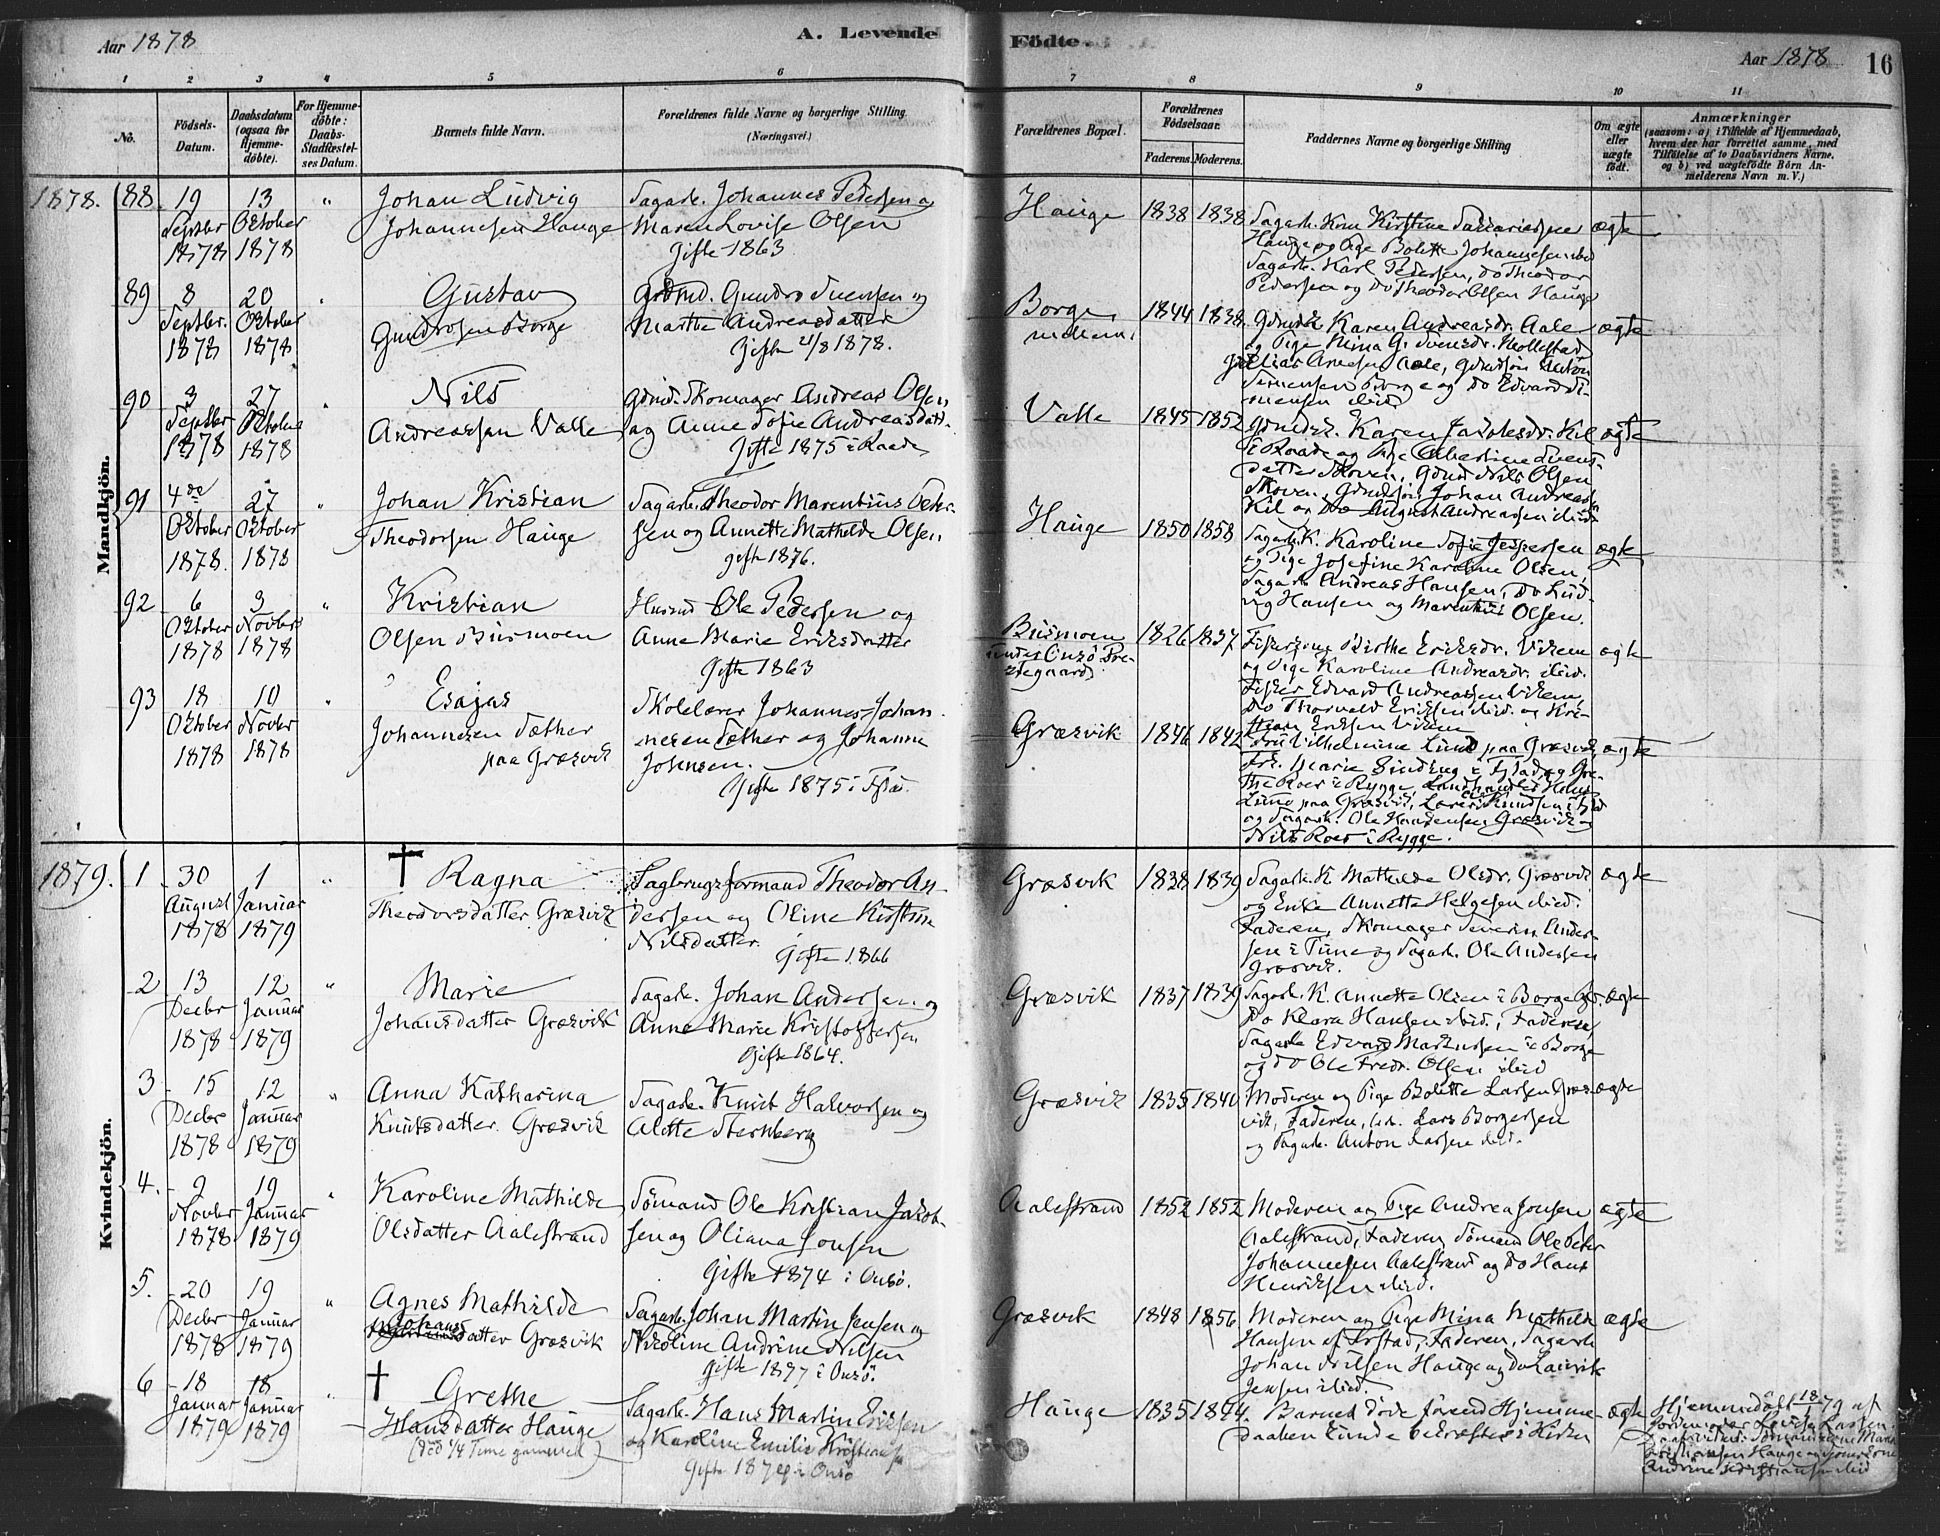 Aar 1878
A. Levende
Födte.
Aar 1878
16
1 2 3 4 5 6 7 8 9 10 11
No.
Födsels-
Datum.
Daabsdatum
(ogsaa for
Hjemme-
döbte).
For Hjemme-
döbte:
Daabs-
Stadfæstel-
ses Datum.
Barnets fulde Navn.
Forældrenes fulde Navne og borgerlige Stilling
(Næringsvei.)
Forældrenes Bopæl.
Forældrenes
Födselsaar.
Faderens.
Moderens.
Faddernes Navne og borgerlige Stilling
Om ægte
eller
uægte
födt.
Anmærkninger
(saasom: a) i Tilfælde af Hjemmedaab,
hvem der har forrettet samme, med
Tilföielse af to Daabsvidners Navne.
og b) ved uægtefödte Börn An-
melderens Navn m. V.)
Mandkjön.
1878. 88. 19 13 "
Septbr Oktober
1878 1878
Johan Ludvig
Johannesen Hauge
Sagarb. Johannes Pedersen og
Maren Lovise Olsen
Gifte 1863
Hauge 1838 1838
Sagarb. Kone Kirstine
Hauge og Pige Bolette Johannesen ibid
Sagarb. Karl Pedersen, Do Theodor
Pedersen og Do Theodor Olsen Hauge
ægte
89 8 20 "
Septbr. Oktober
1878 1878
Gustav
Gundrosen Borge
Grdmd. Gundro Svensen og
Marthe Andreasdatter
Gifte 21/8 1878.
Borge
1844 1838
Gdmdk Karen Andreasdr. Aale
og Pige Mina G. Svensdr.
Elias Arnesen Aale, Gdmdsön Anton
Simensen Borge og Do Edvard Si-
mensen ibid
ægte
90 3 27 "
Septbr Oktober
1878 1878
Nils
Andreassen Valle
Gdmd. Skomager Andreas Olsen
og Anne Sofie Andreasdatt.
Gifte 1875 i Raade
Valle 1845 1852
Gdmdk. Karen Jakobsdr. Kil
i Raade og Pige Svens-
datter Skoven, Gdmd Nils Olsen
Skoven, Gdmdsön Johan Andreasen
Kil og Do August Andreassen ibid
ægte
91 4de 27 "
Oktober Oktober
1878. 1878
Johan Kristian
Theodorsen Hauge
Sagarb. Theodor Marentius Peder-
sen og Annette Mathilde Olsen
gifte 1876.
Hauge 1850 1858
Sagarb. K. Karoline Sofie Jespersen
og Pige Josefine Karoline Olsen,
Sagarb. Andreas Hansen, Do Lud-
vig Hansen og Marentius Olsen.
ægte
92 6 3 "
Oktober Novbr
1878 1878
Kristian
Olsen Busmoen
Husmd Ole Pedersen og
Anne Marie Eriksdatter
Gifte 1863
Busmoen
under Onsö Pre-
stegaard
1826 1837
Fiskerkone Birthe Eriksdr. Viken
og Pige Karoline Andreasdr. ibid.
Fisker Edvard Andreassen Viken,
Do Thorvald Eriksen ibid. og Kri-
stian Eriksen Viken
ægte
93 18 10 "
Oktober Novbr
1878 1878
Esajas
Johannesen Sæther
paa Græsvik
Skolelærer Johannes Johan-
nesen Sæther og Johanne
Johnsen.
Gifte 1875 i
Græsvik 1846 1842
Fru Vilhelmine Lund paa Græsvik,
Frk. Marie Sinding i Fr.stad, og Gre-
the Roer i Rygge, Landhandler Hans
Lund paa Græsvik, Lærer Knudsen i Fr.stad
og Sagarb. Ole Haagensen Græsvik og
Nils Roer i Rygge.
ægte
Kvindekjön.
1879. 1 30 1 "
August Januar
1878 1879
† Ragna
Theodorsdatter Græsvik
Sagbrugsformand Theodor An-
dersen og Oline Kirstine
Nilsdatter.
Gifte 1866
Græsvik 1838 1839
Sagarb. K. Mathilde Olsdr. Græsvik
og Enke Annette Helgesen ibid.
Faderen, Skomager Severin Ander-
sen i Tune og Sagarb. Ole Andersen
Græsvik.
ægte
2 13 12 "
Decbr Januar
1878 1879
Marie
Johansdatter Græsvik
Sagarb. Johan Andersen og
Anne Marie Kristoffersen
Gifte 1864.
Græsvik 1837 1839
Sagarb. K. Annette Olsen i Borge
Do Klara Hansen ibid., Faderen,
Sagarb Edvard Martinsen i Borge
og Do Ole Fredr. Olsen ibid
ægte
3 15 12 "
Decbr Januar
1878 1879
Anna Katharina
Knutsdatter Græsvik
Sagarb. Knut Halvorsen og
Alette Sternberg
Græsvik 1835 1840
Moderen og Pige Bolette Larsen Græs-
vik, Faderen, Lars Borgersen
og Sagarb. Anton Larsen ibid.
ægte
4. 9 19 "
Novbr Januar
1878 1879
Karoline Mathilde
Olsdatter Aalestrand
Sömand Ole Kristian Jakob-
sen og Oliana Jonsen
Gifte 1874 i Onsö.
Aalestrand 1852 1852
Moderen og Pige Andrea Jonsen
Aalestrand, Faderen, Sömand Ole Peter
Johannesen Aalestrand og Do Hans
Henriksen ibid.
ægte
5. 20 19 "
Decbr Januar
1878 1879
Agnes Mathilde
Johans
datter Græsvik
Sagarb. Johan Martin Jensen og
Nikoline Andrine Nilsen
gifte 1877 i Onsö.
Græsvik 1848 1856
Moderen og Pige Mina Mathilde
Hansen af Fr.stad, Faderen, Sagarb
Johan Nilsen Hauge og Do Laurik
Jensen ibid.
ægte
6 18 18 "
Januar Januar
1879 1879
† Grethe
Hansdatter Hauge
(död 1/4 Time gammel)
Sagarb. Hans Martin Eriksen
og Karoline Emilie Kristiansen
Gifte 187 i Onsö
Hauge 1835 1844.
Barnet döde förend Hjemme-
daaben kunde bekræftes i Kirken
ægte
Hjemmedöbt 18/1 79 af
Jordemoder Lovise Larsen.
Daabsvidner: Sömandskone Maren
Kristiansen Hauge og
Andrine Kristiansen ibid